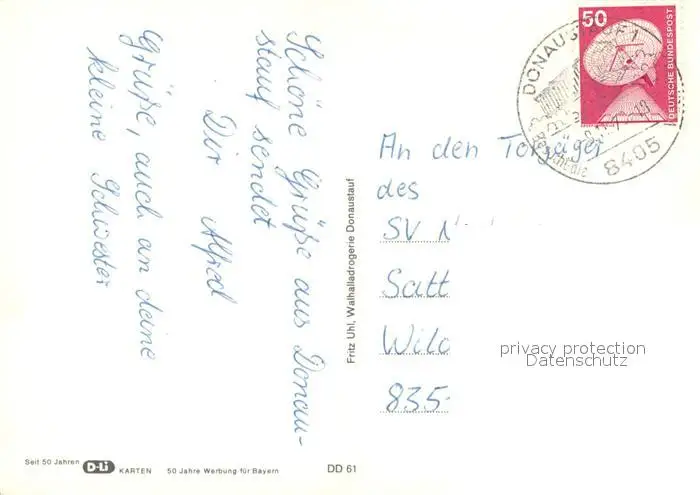 Schöne Grüße aus Donau-
stauf sendet
Dir Alfred
Grüße, auch an deine
kleine Schwester
Fritz Uhl, Walhalladrogerie Donaustauf
Seit 50 Jahren D-Li KARTEN 50 Jahre Werbung für Bayern
DD 61
50
DEUTSCHE BUNDESPOST
DONAUSTAUF 1
8405
An den Torjäger
des
SV N
Satt
Wilc
835
privacy protection
Datenschutz